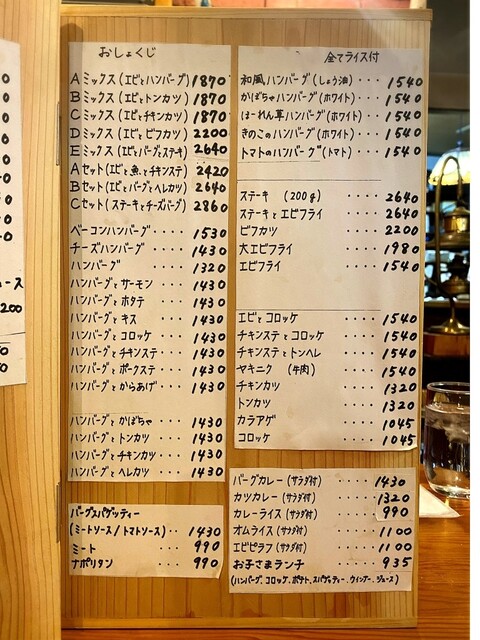 おしょくじ
Aミックス(エビとハンバーグ) 1870
Bミックス(エビとトンカツ) 1870
Cミックス(エビとチキンカツ) 1870
Dミックス(エビとビフカツ) 2200
Eミックス(エビとバーグとステーキ) 2640
Aセット(エビと魚とチキンステ) 2420
Bセット(エビとバーグとヘレカツ) 2640
Cセット(ステーキとチーズバーグ) 2860
ベーコンハンバーグ・・・・ 1530
チーズハンバーグ ・・・・ 1430
ハンバーグ ・・・・ 1320
ハンバーグとサーモン ・・・・ 1430
ハンバーグとホタテ ・・・・ 1430
ハンバーグとキス ・・・・ 1430
ハンバーグとコロッケ ・・・・ 1430
ハンバーグとチキンステ・・・・ 1430
ハンバーグとポークステ・・・・ 1430
ハンバーグとからあげ・・・・ 1430
ハンバーグとかぼちゃ ・・・・ 1430
ハンバーグとトンカツ ・・・・ 1430
ハンバーグとチキンカツ ・・・・ 1430
ハンバーグとヘレカツ ・・・・ 1430
バーグスパゲッティー
(ミートソース/トマトソース)・・ 1430
ミート ・・・ 990
ナポリタン ・・・ 990
全てライス付
和風ハンバーグ(しょうゆ)・・・ 1540
かぼちゃハンバーグ(ホワイト)・・・ 1540
ほーれん草ハンバーグ(ホワイト)・・・ 1540
きのこのハンバーグ(ホワイト)・・・ 1540
トマトのハンバーグ(トマト)・・・ 1540
ステーキ (200g) ・・・・ 2640
ステーキとエビフライ ・・・・ 2640
ビフカツ ・・・・ 2200
大エビフライ ・・・・ 1980
エビフライ ・・・・ 1540
エビとコロッケ ・・・・ 1540
チキンステとコロッケ ・・・・ 1540
チキンステとトンヘレ ・・・・ 1540
ヤキニク (牛肉) ・・・・ 1540
チキンカツ ・・・・ 1320
トンカツ ・・・・ 1320
カラアゲ ・・・・ 1045
コロッケ ・・・・ 1045
バーグカレー(サラダ付) ・・・・ 1430
カツカレー(サラダ付) ・・・・ 1320
カレーライス(サラダ付) ・・・・ 990
オムライス(サラダ付) ・・・・ 1100
エビピラフ(サラダ付) ・・・・ 1100
お子さまランチ ・・・・ 935
(ハンバーグ、コロッケ、ポテト、スパゲッティー、ウインナー、ジュース)